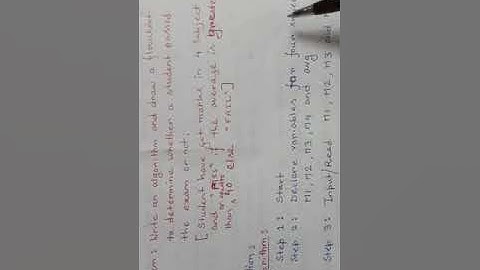 m: Write an algorithm and draw a flowchart
to determine whether a student passed
the exam or not;
[Student have got marks in 4 subject
and "PASS" if the average is greater
or equal
than 40 else "FAIL"]
tion:
orithm:
Step 1: Start
Step 2: Declare variables for four
M1, M2, M3, M4 and avg
Step 3: Input/Read M1, M2, M3 and